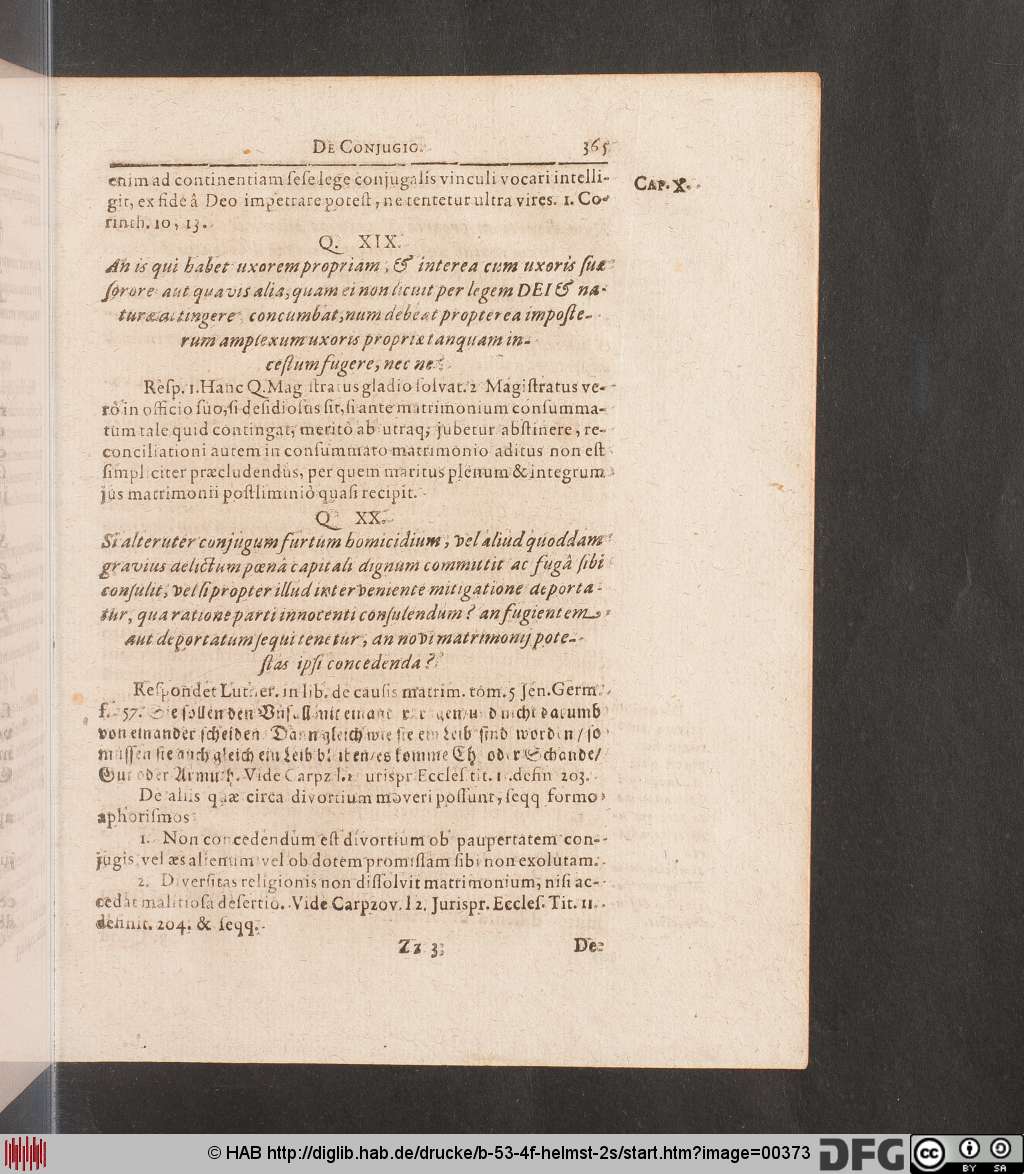 DE CONJUGIO. 365
enim ad continentiam ſeſe lege conjugalis vinculi vocari intelli-
git, ex fide â Deo impetrare poteſt, ne tentetur ultra vires. 1. Co-
rinth. 10, 13.
CAP. X.
Q. XIX.
An is qui habet uxorem propriam, & interea cum uxoris ſuæ
ſorore aut quavis alia, quam ei non licuit per legem DEI & na-
turæ attingere, concumbat, num debeat propterea impoſte-
rum amplexum uxoris propriæ tanquam in-
ceſtum fugere, nec ne?
Reſp. 1. Hanc Q. Magiſtratus gladio ſolvat. 2 Magiſtratus ve-
rò in officio ſuo, ſi deſidioſus ſit, ſi ante matrimonium conſumma-
tum tale quid contingat, meritò ab utraq; jubetur abſtinere, re-
conciliationi autem in conſummato matrimonio aditus non eſt
ſimpliciter præcludendus, per quem maritus plenum & integrum
jus matrimonii poſtliminiò quaſi recipit.
Q XX.
Si alteruter conjugum furtum homicidium, vel aliud quoddam
gravius delictum pœnâ capitali dignum committit ac fugâ ſibi
conſulit, vel ſi propter illud interveniente mitigatione deporta-
tur, qua ratione parti innocenti conſulendum? an fugientem
aut deportatum ſequi tenetur, an novi matrimonij pote-
ſtas ipſi concedenda?
Reſpondet Luther. in lib. de cauſis matrim. tom. 5 Jen. Germ.
f. 257. Sie ſollen den Unfall mit einander tragen/und nicht darumb
von einander ſcheiden Dann gleich wie ſie ein Leib ſind worden/ſo
müſſen ſie auch gleich ein Leib bleiben/es komme Ehr oder Schande/
Gut oder Armuth. Vide Carpz l. 2 Jurispr Eccleſ tit. 11. defin 203.
De aliis quæ circa divortium moveri poſſunt, ſeqq formo
aphoriſmos
1. Non concedendum eſt divortium ob paupertatem con-
jugis, vel æs alienum vel ob dotem promiſſam ſibi non exolutam.
2. Diverſitas religionis non diſſolvit matrimonium, niſi ac-
cedat malitioſa deſertio. Vide Carpzov. l 2. Jurispr. Eccleſ. Tit. 11.
definit. 204. & ſeqq.
Zz 3 De
© HAB http://diglib.hab.de/drucke/b-53-4f-helmst-2s/start.htm?image=00373
DFG
cc BY SA